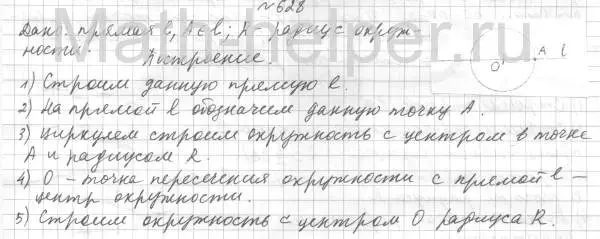 №628
Дано: прямая l, A∈l; R - радиус окруж-
ности.
Построение.
O A l
1) Строим данную прямую l.
2) На прямой l обозначим данную точку A.
3) Циркулем строим окружность с центром в точке
A и радиусом R.
4) O - точка пересечения окружности с прямой l -
центр окружности.
5) Строим окружность с центром O радиуса R.
Math-helper.ru